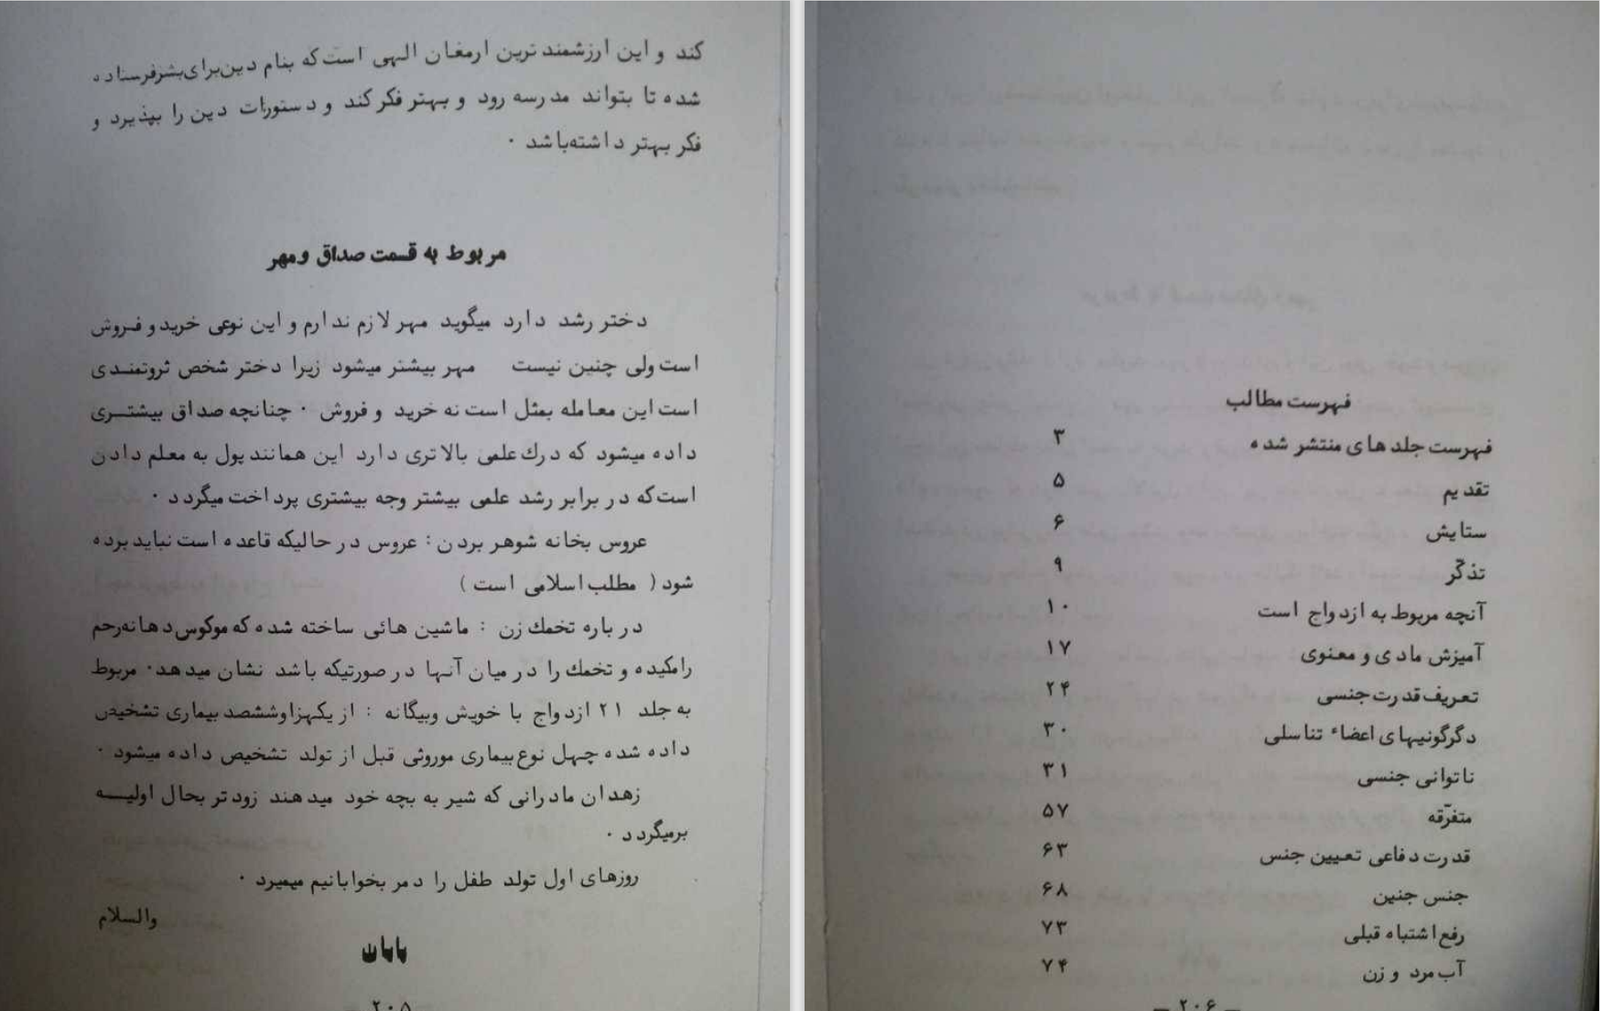 کند و این ارزشمند ترین ارمغان الهی است که بنام دین برای بشر فرستاده
شده تا بتواند مدرسه رود و بهتر فکر کند و دستورات دین را بپذیرد و
فکر بهتر داشته باشد .
مربوط به قسمت صداق ومهر
دختر رشد دارد میگوید مهر لازم ندارم و این نوعی خرید و فروش
است ولی چنین نیست مهر بیشتر میشود زیرا دختر شخص ثروتمندی
است این معامله بمثل است نه خرید و فروش . چنانچه صداق بیشتری
داده میشود که درك علمی بالا تری دارد این همانند پول به معلم دادن
است که در برابر رشد علمی بیشتر وجه بیشتری پرداخت میگردد .
عروس بخانه شوهر بردن : عروس در حالیکه قاعده است نباید برده
شود ( مطلب اسلامی است )
در باره تخمك زن : ماشین هائی ساخته شده که موکوس دهانه رحم
را مکیده و تخمك را در میان آنها در صورتیکه باشد نشان میدهد . مربوط
به جلد ۲۱ ازدواج با خویش وبیگانه : از یکهزاوششصد بیماری تشخیص
داده شده چهل نوع بیماری موروثی قبل از تولد تشخیص داده میشود .
زهدان مادرانی که شیر به بچه خود میدهند زودتر بحال اولیه
برمیگردد .
روزهای اول تولد طفل را دمر بخوابانیم میمیرد .
والسلام
پایان
۲۰۵
فهرست مطالب
فهرست جلد های منتشر شده ۳
تقدیم ۵
ستایش ۶
تذکّر ۹
آنچه مربوط به ازدواج است ۱۰
آمیزش مادی و معنوی ۱۷
تعریف قدرت جنسی ۲۴
دگرگونیهای اعضاء تناسلی ۳۰
ناتوانی جنسی ۳۱
متفرّقه ۵۷
قدرت دفاعی تعیین جنس ۶۳
جنس جنین ۶۸
رفع اشتباه قبلی ۷۳
آب مرد و زن ۷۴
— ۲۰۶ —